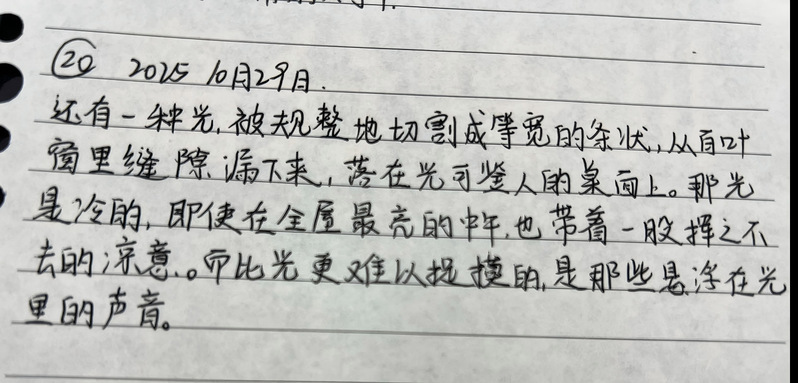 ⑳ 2025 10月29日.
还有一种光,被规整地切割成等宽的条状,从百叶
窗里缝隙漏下来,落在光可鉴人的桌面上。那光
是冷的,即使在全屋最亮的中午,也带着一股挥之不
去的凉意。而比光更难以捉摸的,是那些悬浮在光
里的声音。